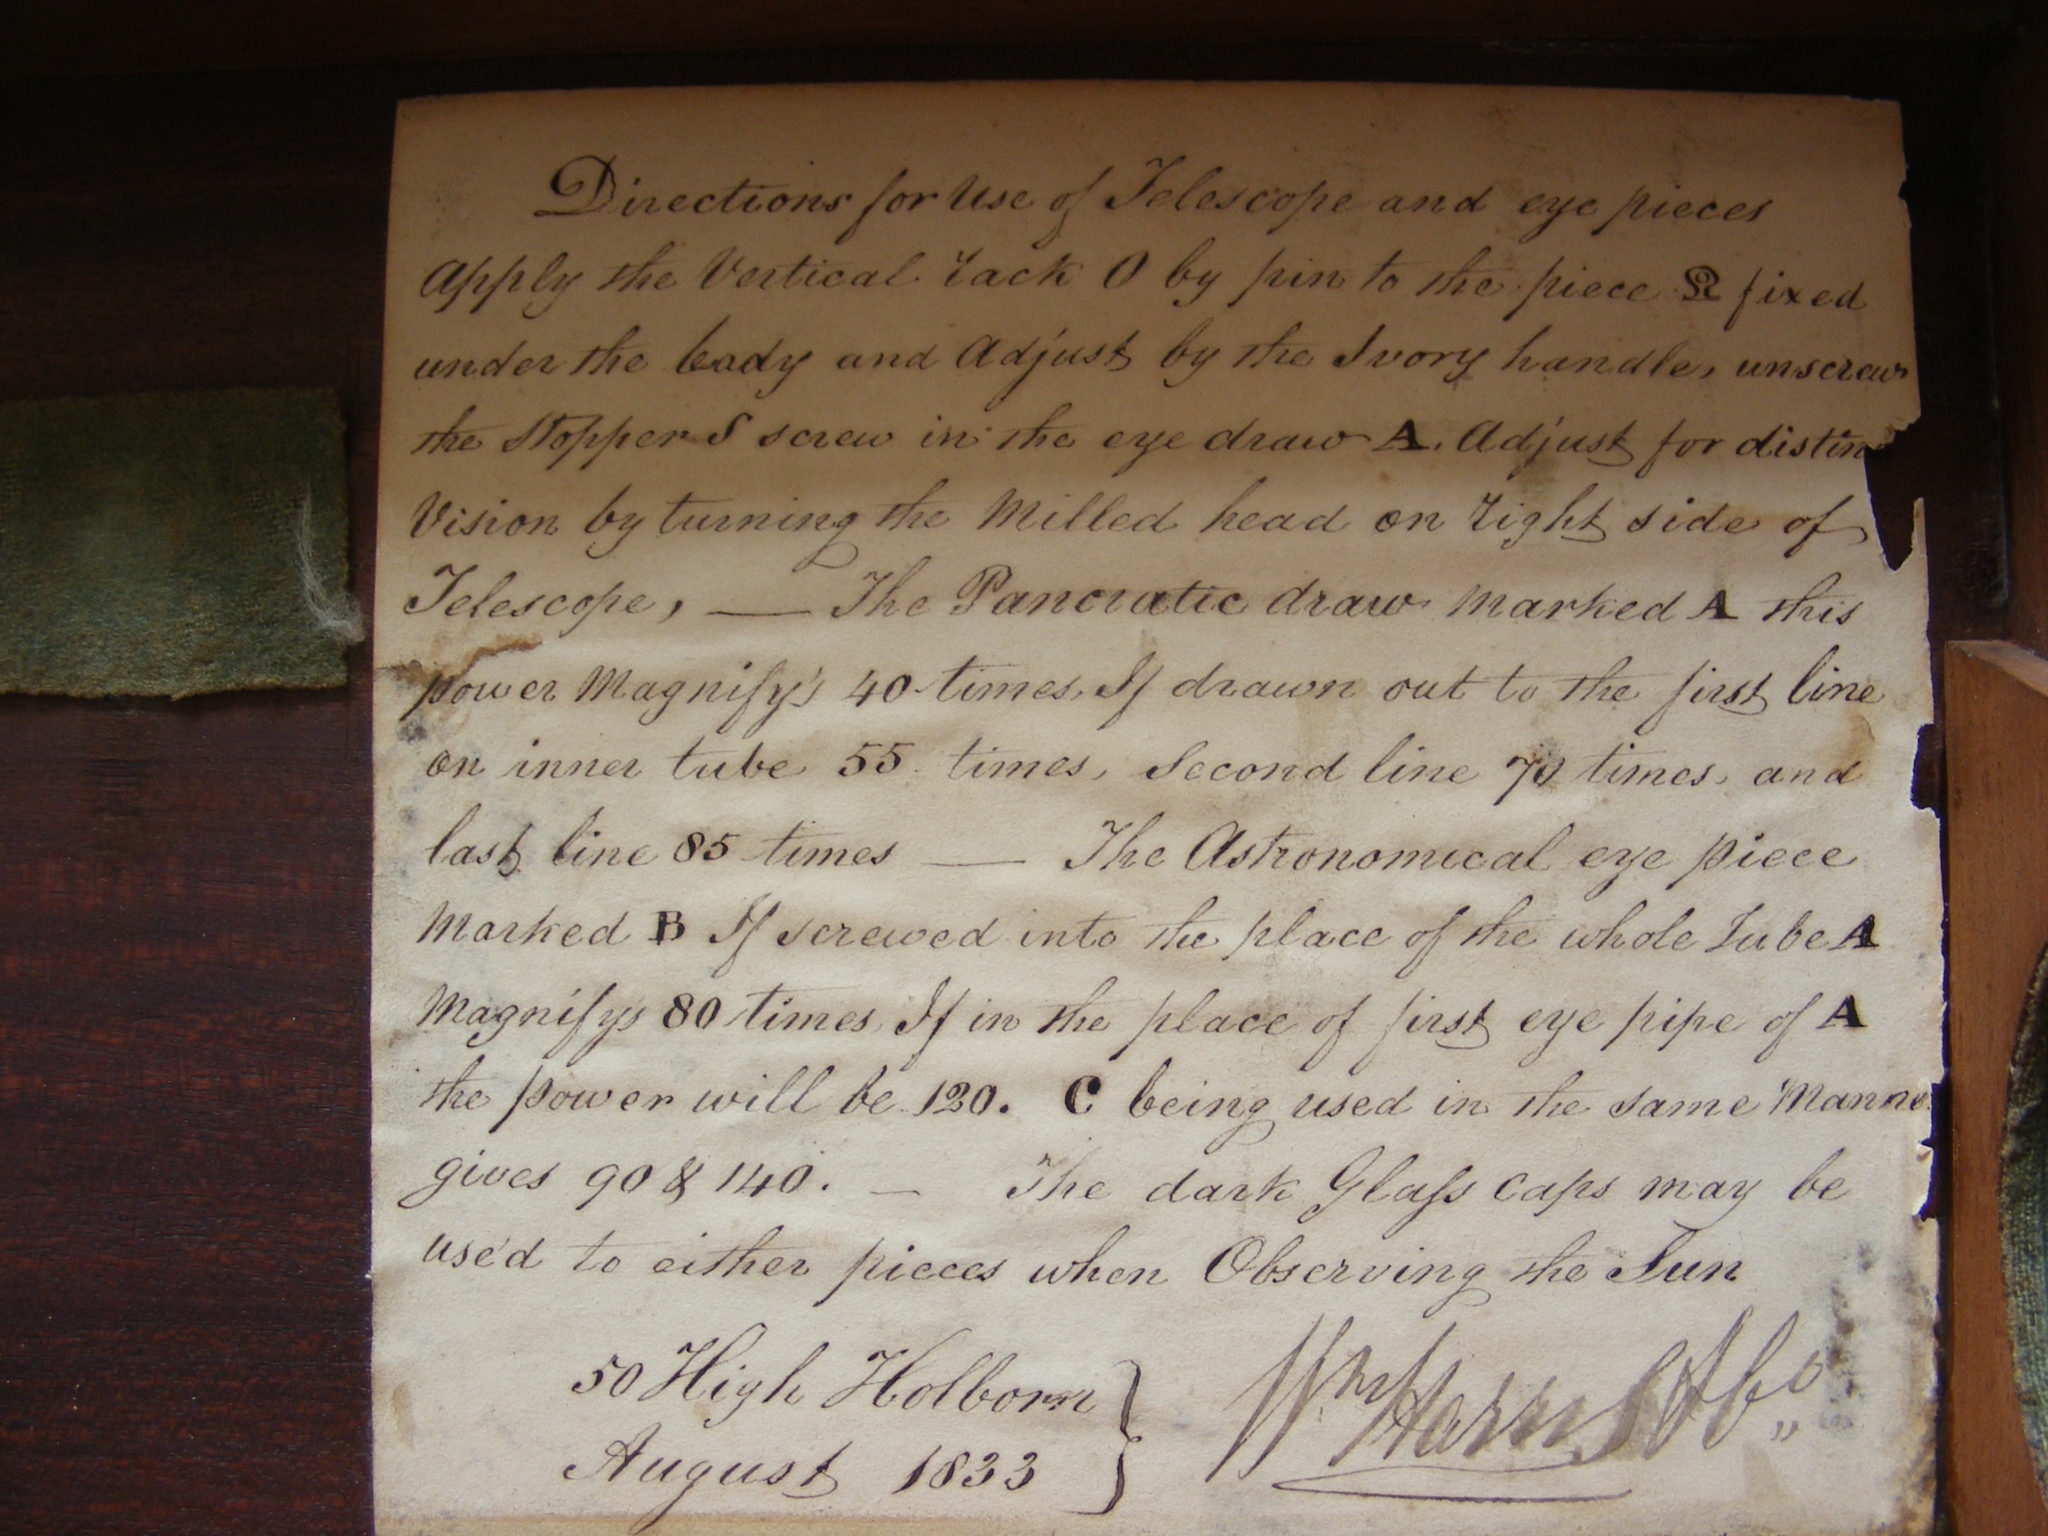 Directions for Use of Telescope and eye pieces
Apply the Vertical rack O by pin to the piece Ω fixed
under the body and Adjust by the Ivory handle, unscrew
the Stopper S screw in the eye draw A. Adjust for distin
Vision by turning the Milled head on right side of
Telescope, — The Pancratic draw Marked A this
power Magnify's 40 times, If drawn out to the first line
on inner tube 55 times, Second line 70 times, and
last line 85 times — The Astronomical eye piece
Marked B If screwed into the place of the whole Tube A
Magnifys 80 times If in the place of first eye pipe of A
the power will be 120. C being used in the same Manne
gives 90 & 140. — The dark Glaſs Caps may be
use'd to either pieces when Observing the Sun
50 High Holborn
August 1833
Wm Harris & Co